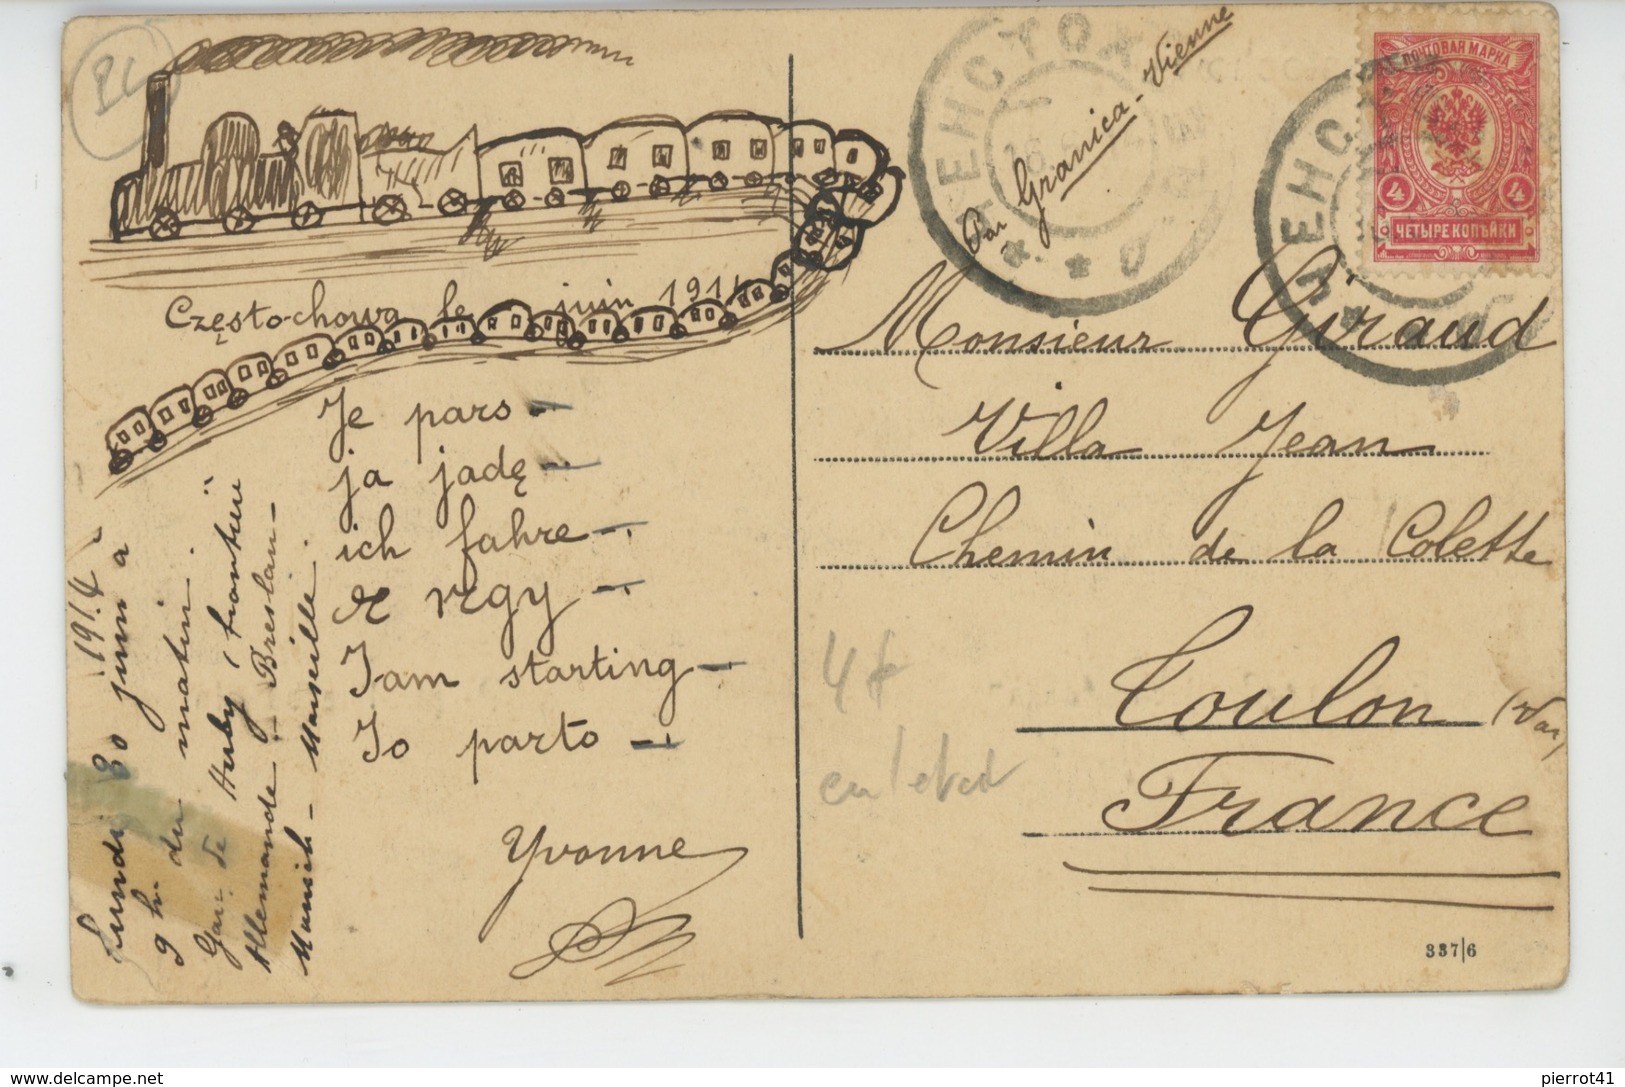 Częstochowa le juin 1914
Je pars —
ja jadę —
ich fahre —
я еду —
I am starting —
Io parto —
Yvonne
Lundi 30 juin à 1914
9 h. du matin.
Gare de Herby (frontière
Allemande) - Breslau -
Munich - Marseille.
Par Granica - Vienne
ПОЧТОВАЯ МАРКА
4 4
ЧЕТЫРЕ КОПѢЙКИ
Monsieur Giraud
Villa Jean
Chemin de la Colette
Toulon (Var)
France
4 f
337|6
www.delcampe.net
pierrot41